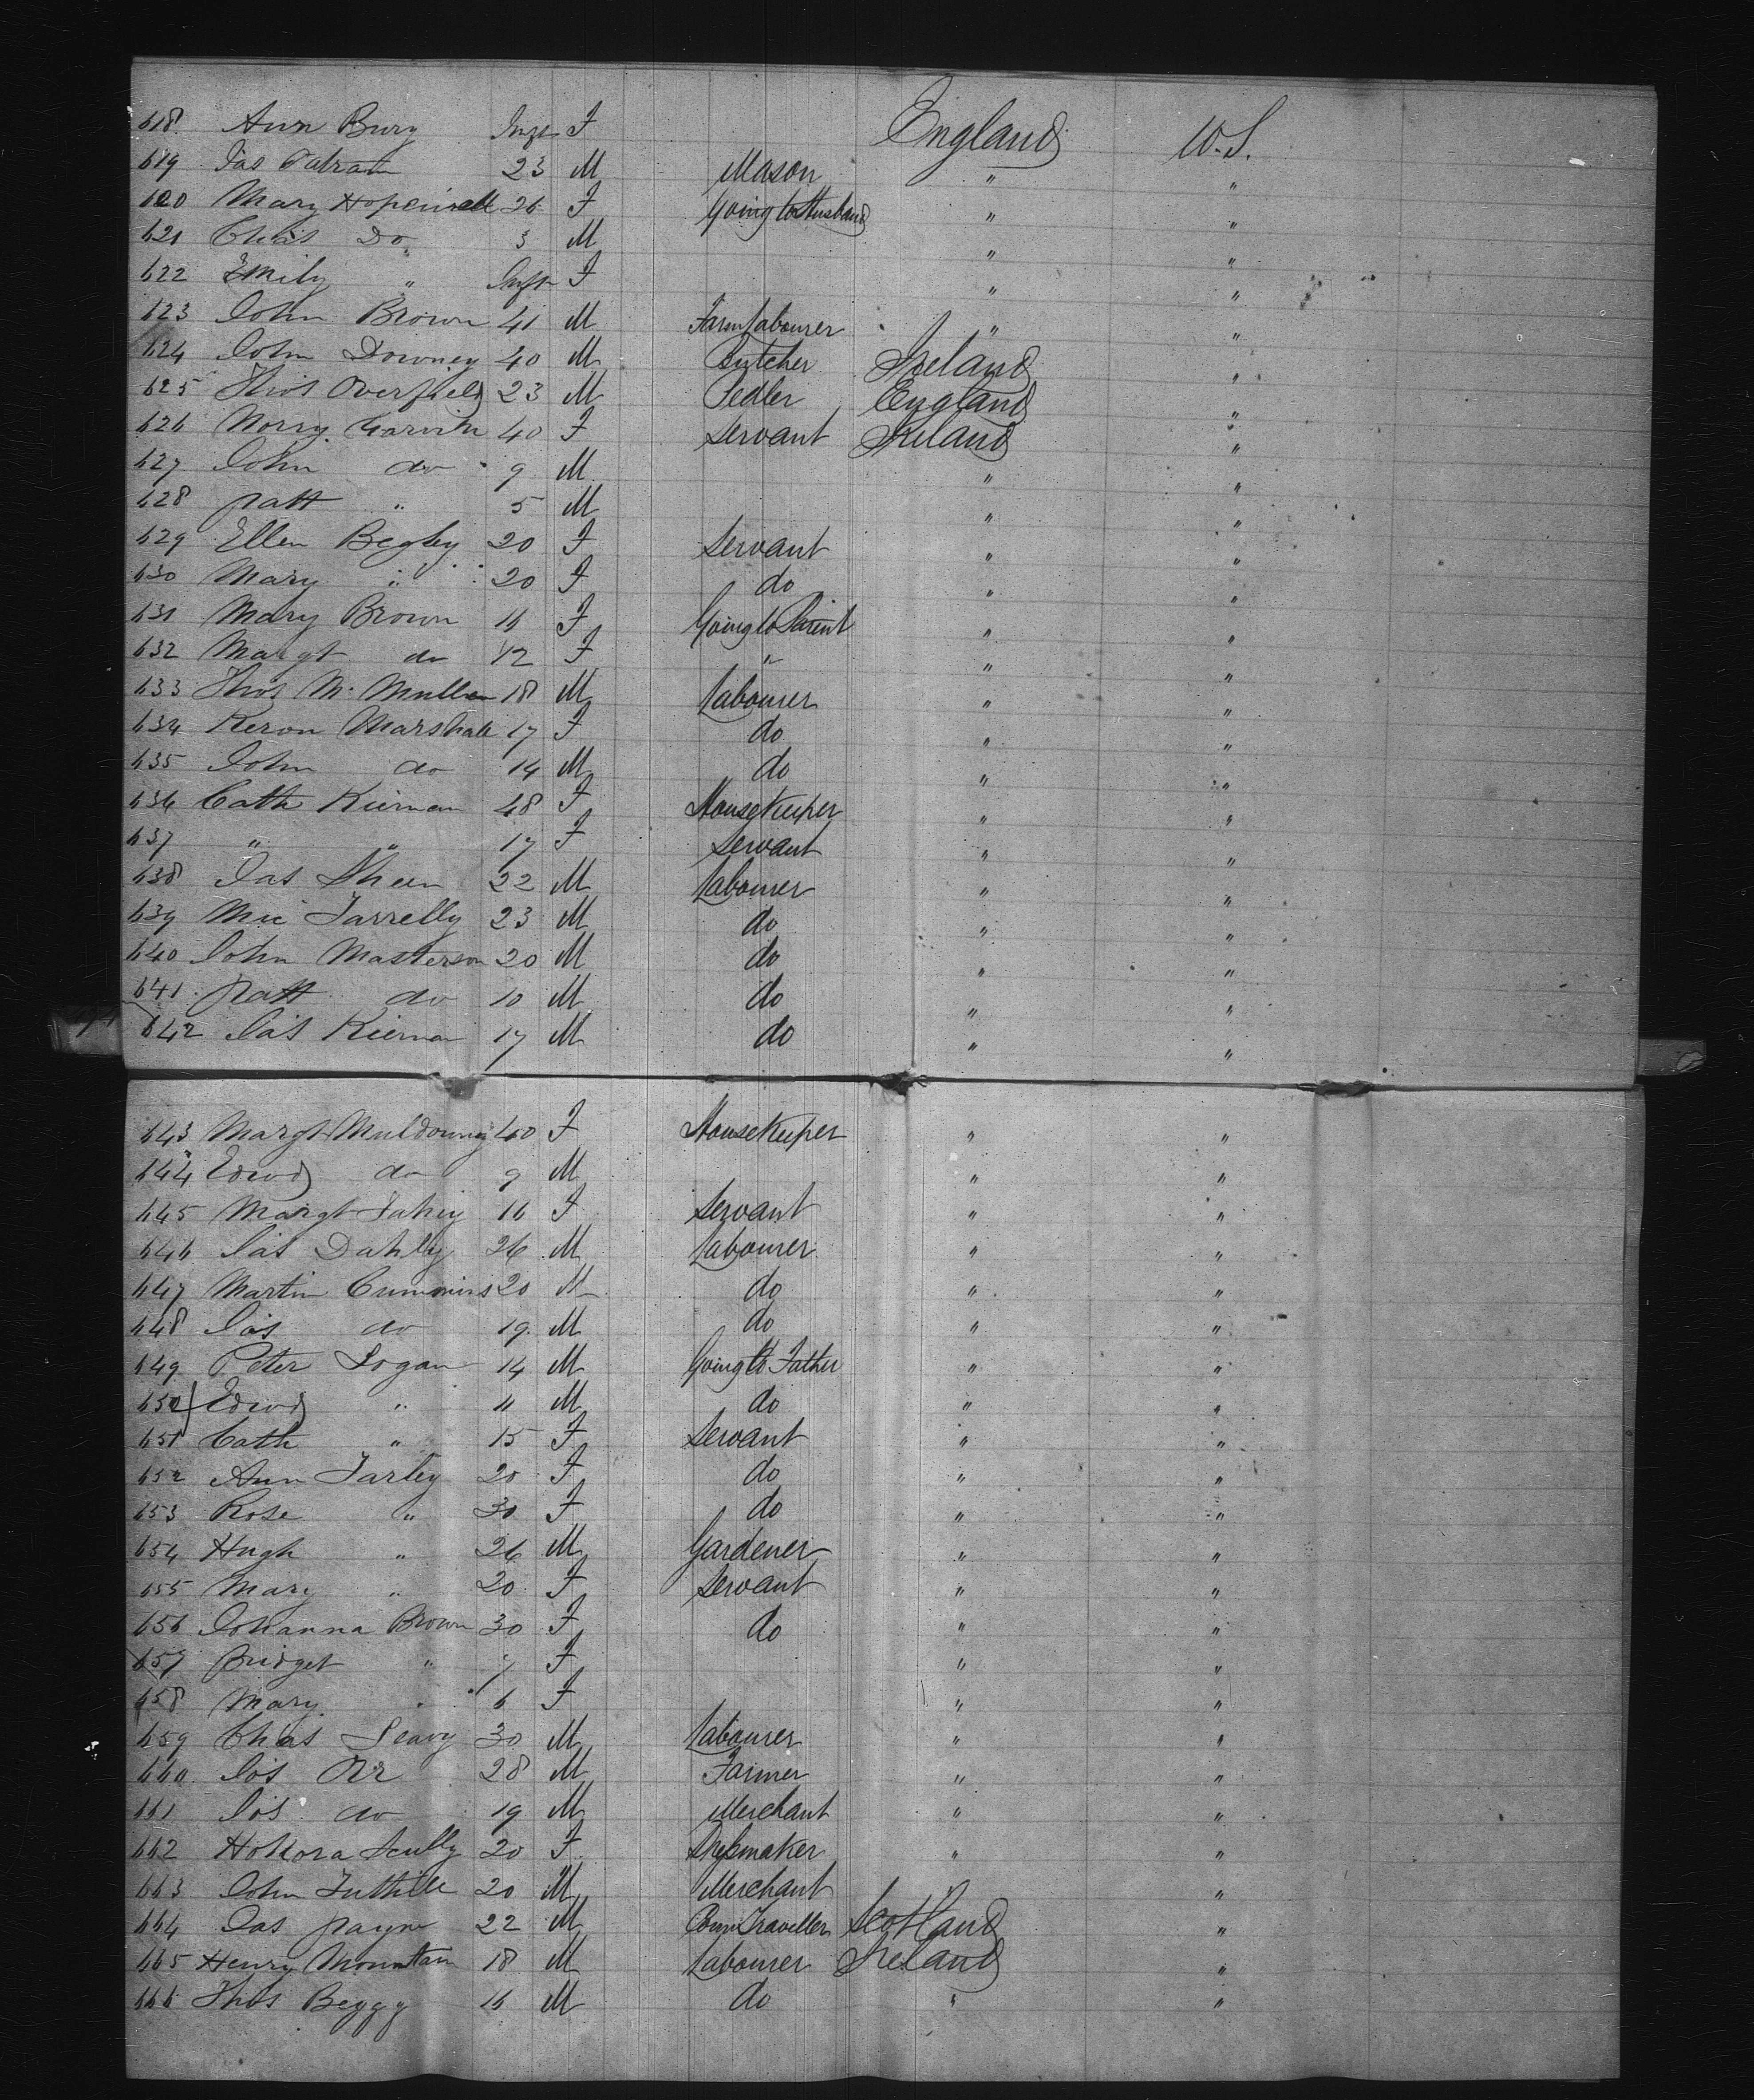 618 Ann Bury Inft F England U.S.
619 Jas 23 M Mason " "
620 Mary Hopewell 26 F Going to Husband " "
621 Chas Do 3 M " "
622 Emily " Inft F " "
623 John Brown 41 M Farm Labourer " "
624 John Downey 40 M Butcher Ireland "
625 Thos Overfield 23 M Pedler England "
626 Norry Garvin 40 F Servant Ireland "
627 John do 9 M " "
628 Patt " 5 M " "
629 Ellen Begley 20 F Servant " "
630 Mary " 20 F do " "
631 Mary Brown 16 F Going to Parent " "
632 Margt do 12 F " " "
633 Thos McMullen 18 M Labourer " "
634 Keron Marshall 17 F do " "
635 John do 14 M do " "
636 Cath Kiernan 48 F Housekeeper " "
637 " " 17 F Servant " "
638 Jas Sheen 22 M Labourer " "
639 Mic Farrelly 23 M do " "
640 John Masterson 20 M do " "
641 Patt do 10 M do " "
642 Jas Kiernan 17 M do " "
643 Margt Muldowney 40 F Housekeeper " "
644 Edwd do 9 M " "
645 Margt Fahey 16 F Servant " "
646 Jas Dahly 26 M Labourer " "
647 Martin Cummins 20 M do " "
648 Jas do 19 M do " "
649 Peter Logan 14 M Going to Father " "
650 Edwd " 11 M do " "
651 Cath " 15 F Servant " "
652 Ann Farley 20 F do " "
653 Rose " 30 F do " "
654 Hugh " 26 M Gardener " "
655 Mary " 20 F Servant " "
656 Johanna Brown 30 F do " "
657 Bridget " 7 F " "
658 Mary " 6 F " "
659 Chas Leavy 30 M Labourer " "
660 Jos Orr 28 M Farmer " "
661 Jos do 19 M Merchant " "
662 Honora Scully 20 F Dressmaker " "
663 John Tuthill 20 M Merchant " "
664 Jas Payne 22 M Com Traveller Scotland "
665 Henry Mountain 18 M Labourer Ireland "
666 Thos Beggy 16 M do " "